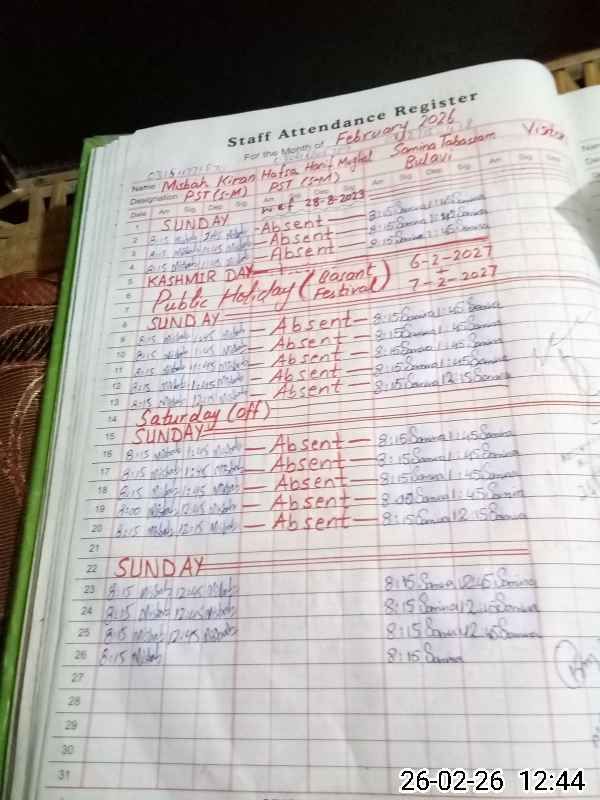 Staff Attendance Register
For the Month of February 2026
Name Misbah Kiran Hafsa Hanif Mughal Samina Tabassam
Designation PST (S-M) PST (S-M) Bulavi
w.e.f 28-8-2023
Date Arr Sig Dep Sig Arr Sig Dep Sig Arr Sig Dep Sig
1 SUNDAY
2 8:15 Misbah 1:45 Misbah -Absent- 8:15 Samina 1:45 Samina
3 8:15 Misbah 1:45 Misbah -Absent- 8:15 Samina 1:45 Samina
4 8:15 Misbah 1:45 Misbah -Absent- 8:15 Samina 1:45 Samina
5 KASHMIR DAY
6 Public Holiday (Basant Festival) 6-2-2027
7 7-2-2027
8 SUNDAY
9 8:15 Misbah 1:45 Misbah -Absent- 8:15 Samina 1:45 Samina
10 8:15 Misbah 1:45 Misbah -Absent- 8:15 Samina 1:45 Samina
11 8:15 Misbah 1:45 Misbah -Absent- 8:15 Samina 1:45 Samina
12 8:15 Misbah 1:45 Misbah -Absent- 8:15 Samina 1:45 Samina
13 8:15 Misbah 12:15 Misbah -Absent- 8:15 Samina 12:15 Samina
14 Saturday (off)
15 SUNDAY
16 8:15 Misbah 1:45 Misbah -Absent- 8:15 Samina 1:45 Samina
17 8:15 Misbah 1:45 Misbah -Absent- 8:15 Samina 1:45 Samina
18 8:15 Misbah 1:45 Misbah -Absent- 8:15 Samina 1:45 Samina
19 8:00 Misbah 12:45 Misbah -Absent- 8:00 Samina 1:45 Samina
20 8:15 Misbah 12:15 Misbah -Absent- 8:15 Samina 12:15 Samina
21
22 SUNDAY
23 8:15 Misbah 12:45 Misbah 8:15 Samina 12:45 Samina
24 8:15 Misbah 12:45 Misbah 8:15 Samina 12:45 Samina
25 8:15 Misbah 12:45 Misbah 8:15 Samina 12:45 Samina
26 8:15 Misbah 8:15 Samina
27
28
29
30
31
26-02-26 12:44